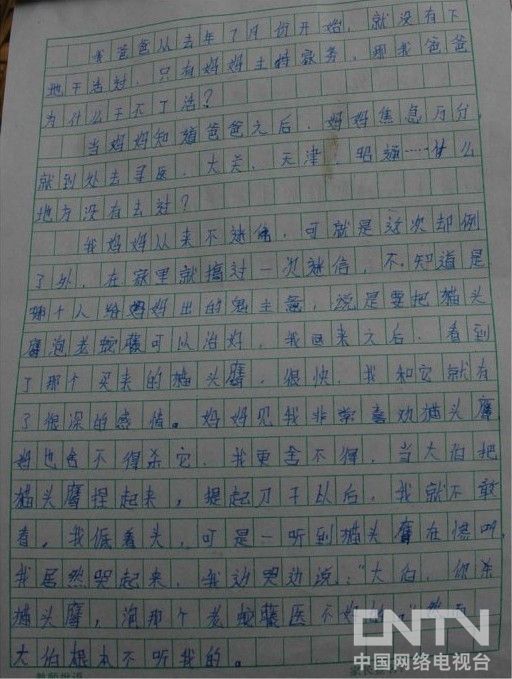 我爸爸从去年7月份开始，就没有下
地干活过，只有妈妈主持家务，那我爸爸
为什么干不了活？
当妈妈知道爸爸之后，妈妈焦急万分，
就到处去寻医，大关、天津、昭通……什么
地方没有去过？
我妈妈从来不迷信，可就是这次却例
了外，在家里就搞过一次迷信，不知道是
那个人给妈妈出的鬼主意，说是要把猫头
鹰泡老蛇藤可以治好，我回来之后，看到
了那个买来的猫头鹰，很快，我和它就有
了很深的感情。妈妈见我非常喜欢猫头鹰
妈也舍不得杀它，我更舍不得，当大伯把
猫头鹰捏起来，提起刀子以后，我就不敢
看。我低着头，可是一听到猫头鹰在惨叫，
我居然哭起来，我边哭边说："大伯，你杀
猫头鹰，泡那个老蛇藤医不好的。"
大伯根本不听我的。
CNTV
中国网络电视台